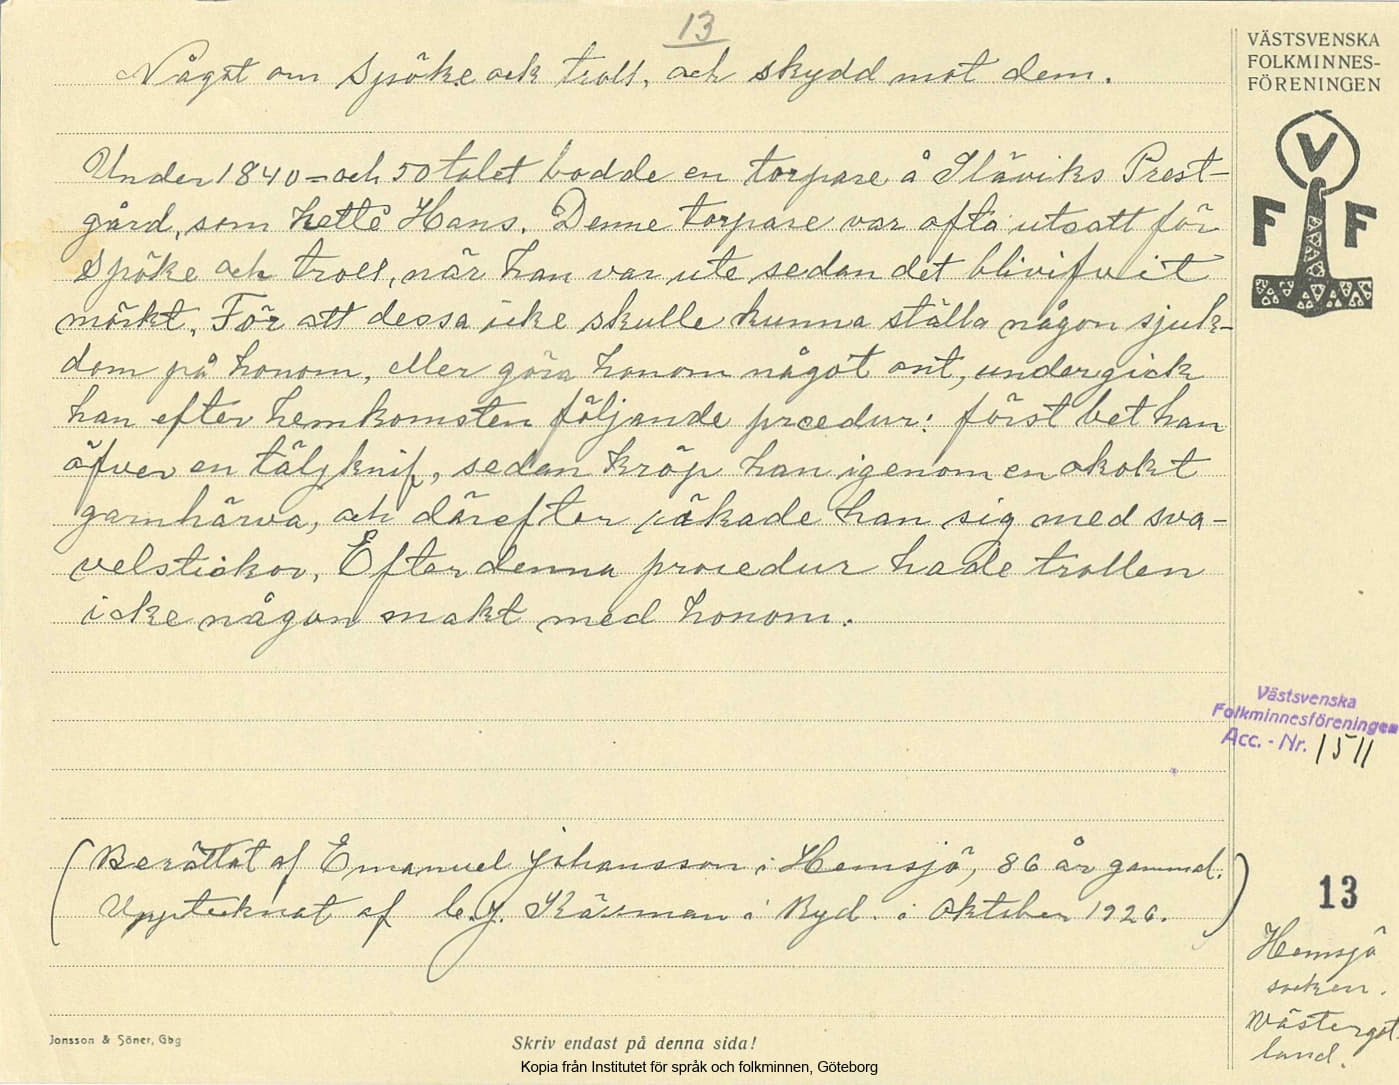 13
Något om Spöke och troll, och skydd mot dem.
Under 1840=och 50 talet bodde en torpare å Släviks Prest-
gård, som hette Hans. Denne torpare var ofta utsatt för
Spöke och troll, när han var ute sedan det blivifvit
mörkt. För att dessa icke skulle kunna ställa någon sjuk-
dom på honom, eller göra honom något ont, undergick
han efter hemkomsten följande prcedur: först bet han
öfver en täljknif, sedan kröp han igenom en okokt
garnhärva, och därefter rökade han sig med sva-
velstickor. Efter denna procedur hade trollen
icke någon makt med honom.
(Berättat af Emanuel Johansson i Hemsjö, 86 år gammal.
Upptecknat af C. J. Kärrman i Ryd. i Oktober 1926.)
VÄSTSVENSKA
FOLKMINNES-
FÖRENINGEN
V
F F
Västsvenska
Folkminnesföreningen
Acc. - Nr. 1511
13
Hemsjö
socken.
Västergöt-
land.
Jonsson & Söner, Gbg
Skriv endast på denna sida!
Kopia från Institutet för språk och folkminnen, Göteborg